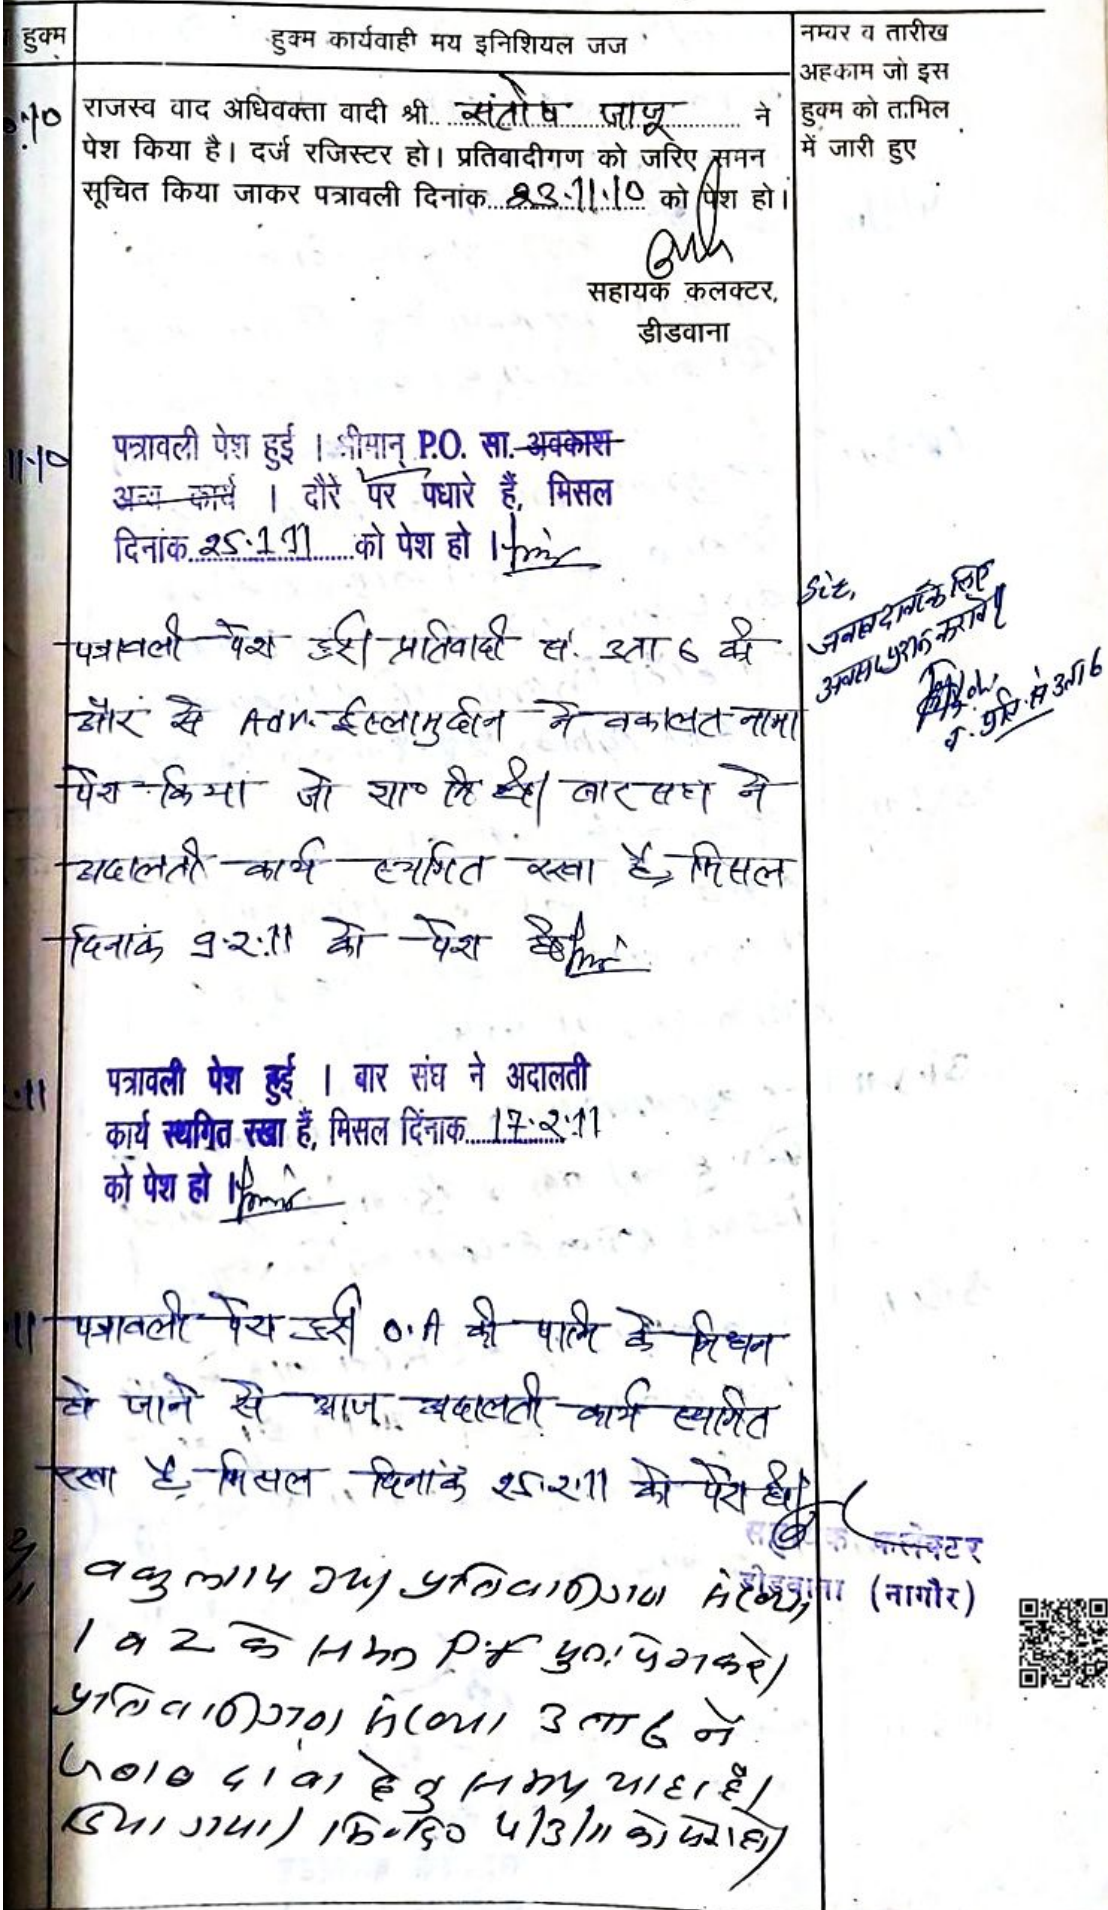 हुक्म
हुक्म कार्यवाही मय इनिशियल जज
नम्बर व तारीख
अहकाम जो इस
हुक्म को तामिल
में जारी हुए
राजस्व वाद अधिवक्ता वादी श्री संतोष जाजू ने
पेश किया है। दर्ज रजिस्टर हो। प्रतिवादीगण को जरिए समन
सूचित किया जाकर पत्रावली दिनांक 23.11.10 को पेश हो।
सहायक कलक्टर,
डीडवाना
11.10
पत्रावली पेश हुई । श्रीमान् P.O. सा. अवकाश
अन्य कार्य । दौरे पर पधारे हैं, मिसल
दिनांक 25.1.11 को पेश हो ।
पत्रावली पेश हुई। प्रतिवादी सं. 3ता 6 की
और से Adv. ईस्लामुद्दीन ने वकालत नामा
पेश किया जो शा० मि हो। बार संघ ने
अदालती कार्य स्थगित रखा है, मिसल
दिनांक 9.2.11 को पेश हो
Sir,
जवाब दावा के लिए
अवसर प्रदान करावें।
प्रति. सं 3ता6
.11
पत्रावली पेश हुई । बार संघ ने अदालती
कार्य स्थगित रखा हैं, मिसल दिंनाक 17.2.11
को पेश हो ।
.11
पत्रावली पेश हुई। O.A की पत्नि के निधन
हो जाने से आज अदालती कार्य स्थगित
रखा है, मिसल दिनांक 25.2.11 को पेश हो।
सहायक कलेक्टर
डीडवाना (नागौर)
वकुलाय गया। प्रतिवादीगण संख्या
1 व 2 के समन P.F पुन: पेश करे।
प्रतिवादीगण संख्या 3 ता 6 ने
जवाब दावा हेतु समय चाहा है।
दिया गया। मि०दि० 4/3/11 को पेश हो।